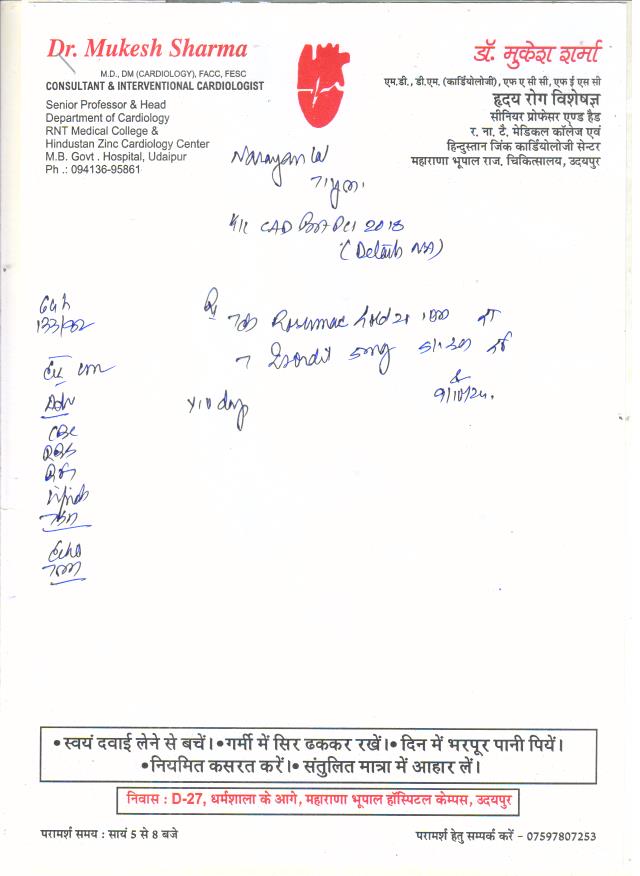 Dr. Mukesh Sharma
M.D., DM (CARDIOLOGY), FACC, FESC
CONSULTANT & INTERVENTIONAL CARDIOLOGIST
Senior Professor & Head
Department of Cardiology
RNT Medical College &
Hindustan Zinc Cardiology Center
M.B. Govt . Hospital, Udaipur
Ph .: 094136-95861
डॉ. मुकेश शर्मा
एम.डी., डी.एम. (कार्डियोलोजी), एफ ए सी सी, एफ ई एस सी
हृदय रोग विशेषज्ञ
सीनियर प्रोफेसर एण्ड हैड
र. ना. टै. मेडिकल कॉलेज एवं
हिन्दुस्तान जिंक कार्डियोलोजी सेन्टर
महाराणा भूपाल राज. चिकित्सालय, उदयपुर
Narayan lal
CAD 2018
(Details NA)
133/82
Adv
CBC
RBS
Echo
TMT
Rx
Isordil 5mg
x 10 days
9/10/24.
• स्वयं दवाई लेने से बचें। • गर्मी में सिर ढककर रखें। • दिन में भरपूर पानी पियें।
• नियमित कसरत करें। • संतुलित मात्रा में आहार लें।
निवास : D-27, धर्मशाला के आगे, महाराणा भूपाल हॉस्पिटल केम्पस, उदयपुर
परामर्श समय : सायं 5 से 8 बजे
परामर्श हेतु सम्पर्क करें - 07597807253